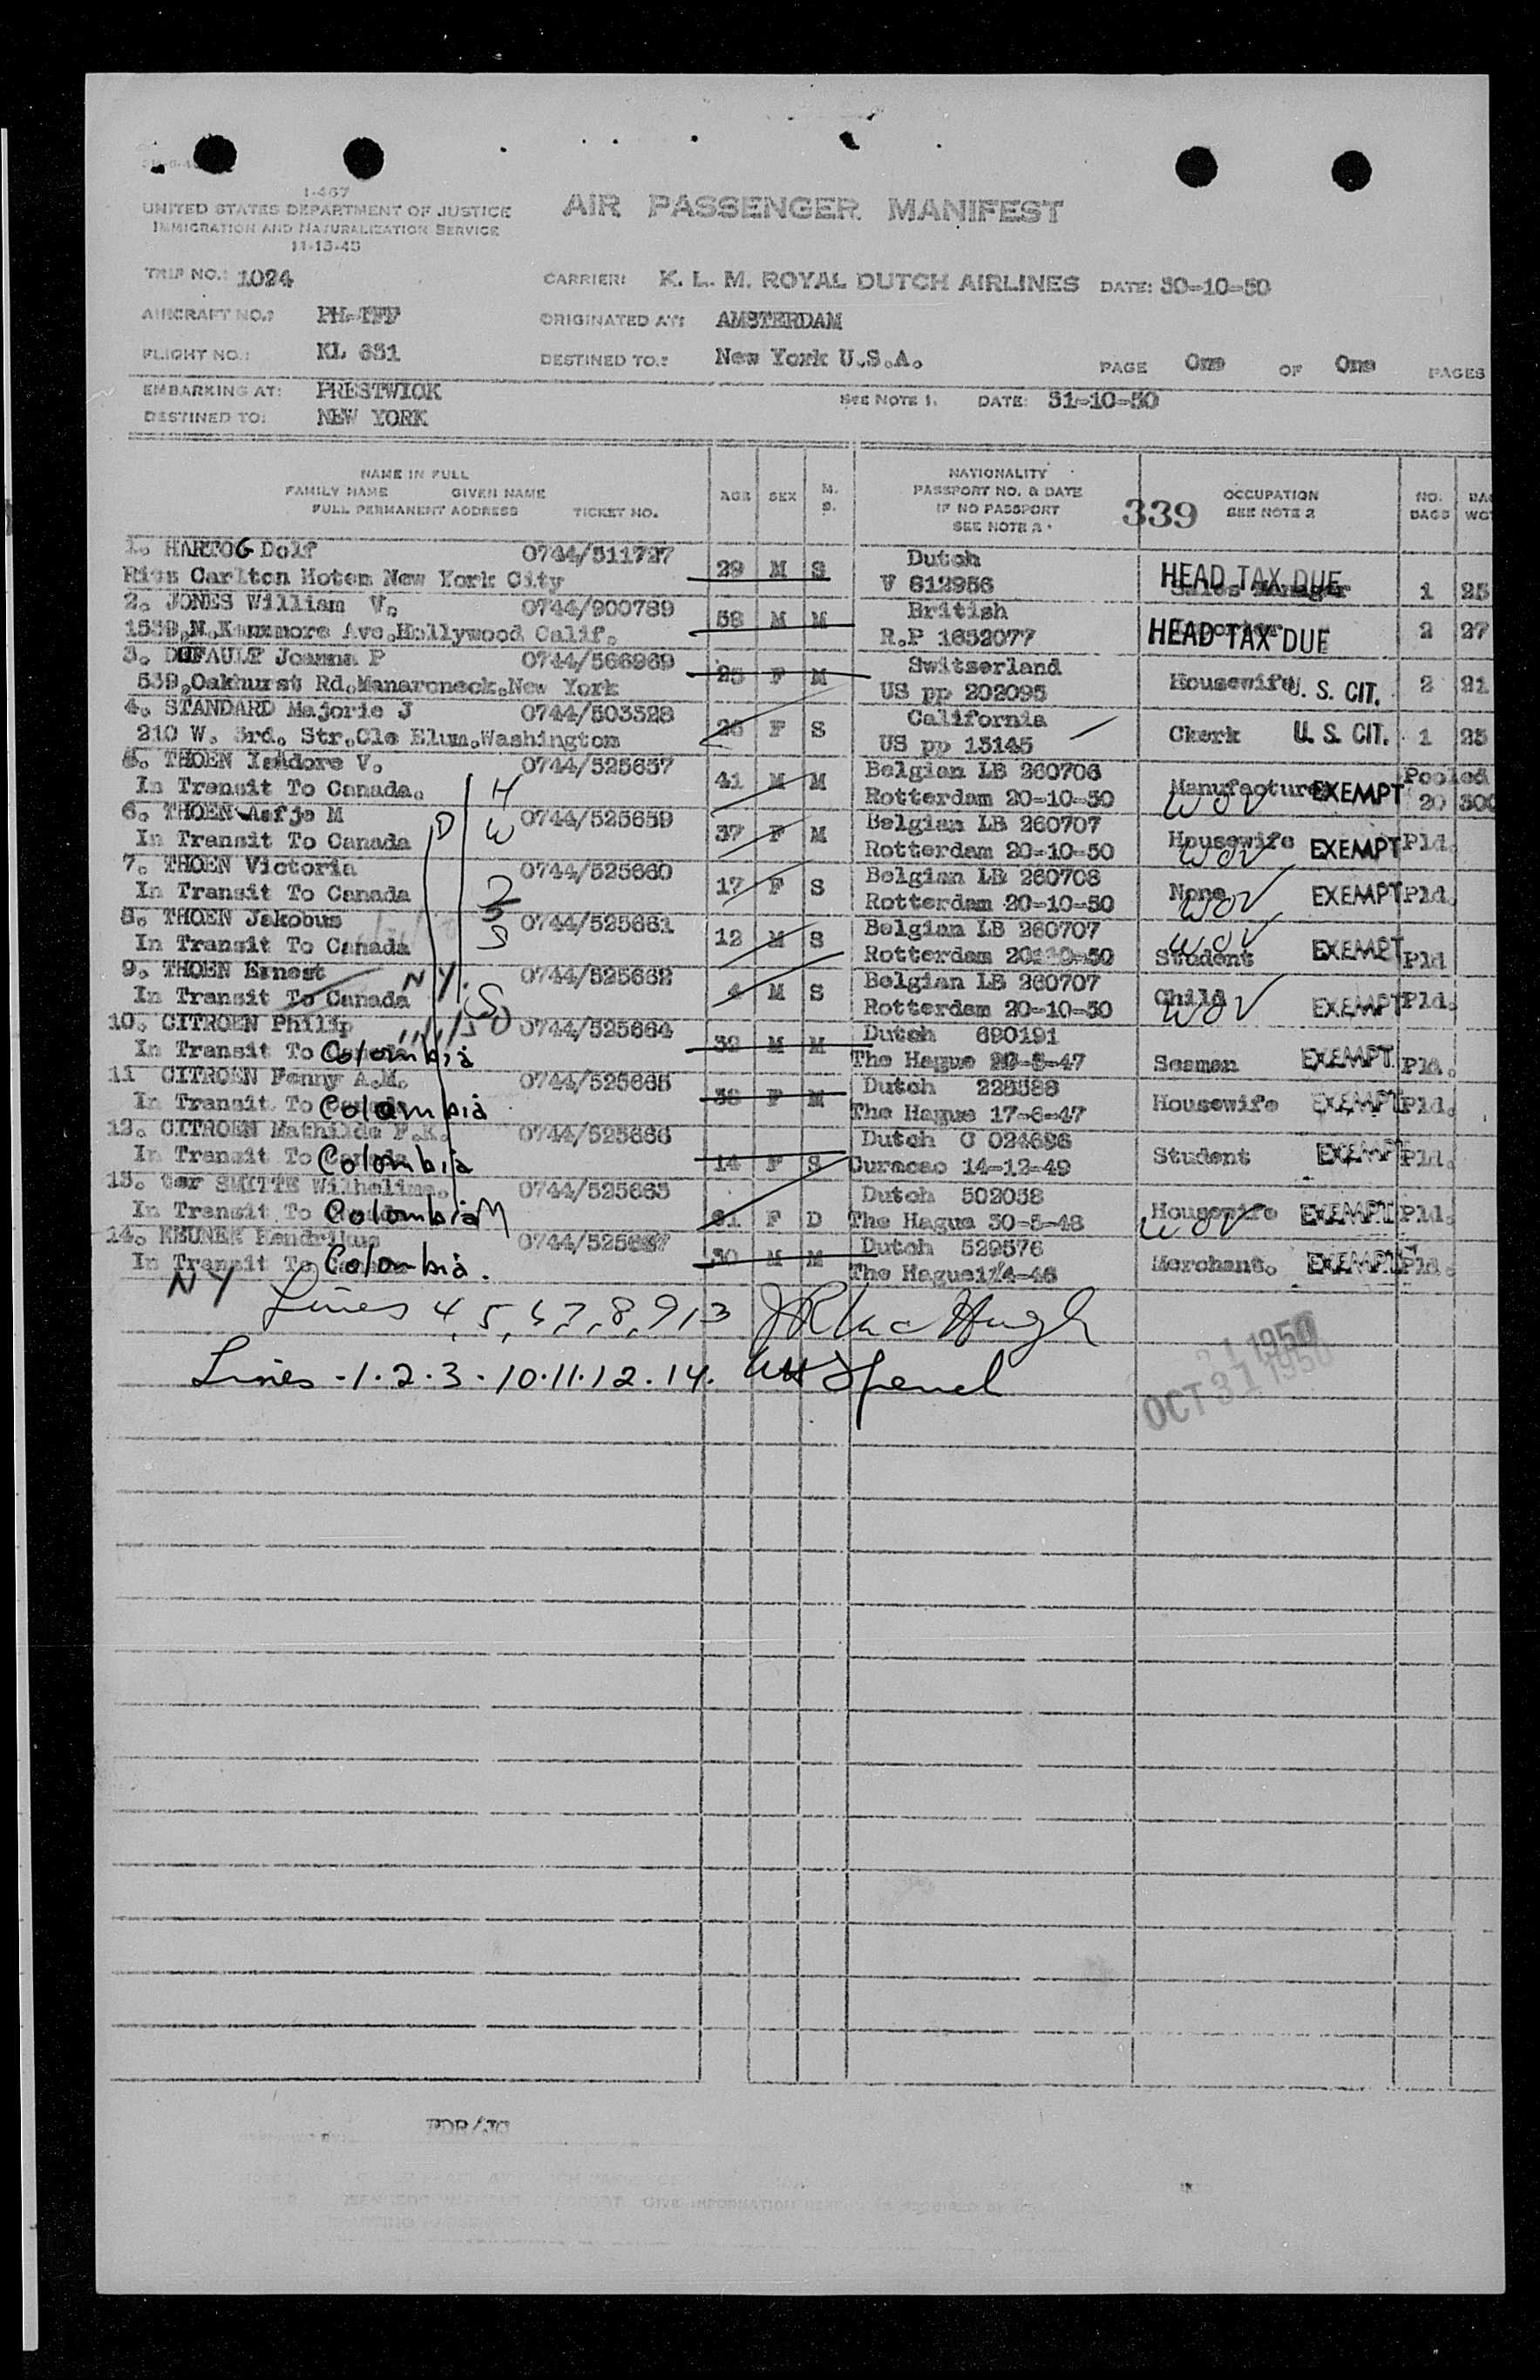 1-467
UNITED STATES DEPARTMENT OF JUSTICE
IMMIGRATION AND NATURALIZATION SERVICE
11-15-45
AIR PASSENGER MANIFEST
TRIP NO.: 1024
CARRIER: K. L. M. ROYAL DUTCH AIRLINES DATE: 30-10-50
AIRCRAFT NO.: PH-TFF
ORIGINATED AT: AMSTERDAM
FLIGHT NO.: KL 651
DESTINED TO.: New York U.S.A.
PAGE One OF One PAGES
EMBARKING AT: PRESTWICK
SEE NOTE 1. DATE: 31-10-50
DESTINED TO: NEW YORK
NAME IN FULL
FAMILY NAME GIVEN NAME
FULL PERMANENT ADDRESS TICKET NO.
AGE SEX M. S.
NATIONALITY
PASSPORT NO. & DATE
IF NO PASSPORT
SEE NOTE 2
339
OCCUPATION
SEE NOTE 2
NO. BAGS
1. HARTOG Dolf 0744/511727 Dutch
Ritz Carlton Hotem New York City 29 M S V 812956 HEAD TAX DUE Sales Manager 1 25
2. JONES William V. 0744/900789 British
1539,N.Kenmore Ave.Hollywood Calif. 58 M M R.P 1652077 HEAD TAX DUE 2 27
3. DUFAULT Joanna P 0744/566969 Switserland
539,Oakhurst Rd.Mamaroneck.New York 25 F M US pp 202095 Housewife U. S. CIT. 2 21
4. STANDARD Majorie J 0744/503528 California
210 W. 3rd. Str.Cle Elum.Washington 26 F S US pp 13145 Ckerk U. S. CIT. 1 25
5. THOEN Isidore V. 0744/525657 Belgian LB 260706 Pooled
In Transit To Canada. H 41 M M Rotterdam 20-10-50 Manufacturer WOV EXEMPT 20 300
6. THOEN Aafje M 0744/525659 Belgian LB 260707
In Transit To Canada W 37 F M Rotterdam 20-10-50 Housewife WOV EXEMPT Pld.
7. THOEN Victoria 0744/525660 Belgian LB 260708
In Transit To Canada 17 F S Rotterdam 20-10-50 None WOV EXEMPT Pld.
8. THOEN Jakobus 0744/525661 Belgian LB 260707
In Transit To Canada S 12 M S Rotterdam 20-10-50 WOV Student EXEMPT Pld
9. THOEN Ernest N Y. 0744/525662 Belgian LB 260707
In Transit To Canada S 4 M S Rotterdam 20-10-50 Child WOV EXEMPT Pld.
10. CITROEN Philip 0744/525664 Dutch 690191
In Transit To Colombia 39 M M The Hague 20-5-47 Seaman EXEMPT Pld.
11 CITROEN Fenny A.M. 0744/525665 Dutch 228588
In Transit To Colombia 38 F M The Hague 17-6-47 Housewife EXEMPT Pld.
12. CITROEN Mathilde F.K. 0744/525666 Dutch C 024696
In Transit To Colombia 14 F S Curacao 14-12-49 Student EXEMPT Pld.
13. ter SMITTE Wilhelima. 0744/525663 Dutch 502038
In Transit To Colombia M 61 F D The Hague 30-5-48 Housewife WOV EXEMPT Pld.
14. KEUNEN Hendrikus 0744/525667 Dutch 529576
In Transit To Colombia. 30 M M The Hague Merchant. EXEMPT Pld.
NY
Lines 4, 5, 6, 7, 8, 9, 13 J R Mac Hugh
Lines - 1 . 2 . 3 . 10 . 11 . 12 . 14.
OCT 31 1950
PDR/JC